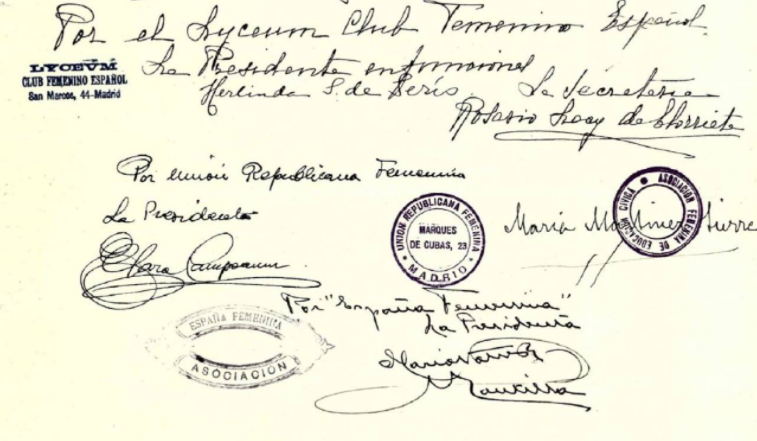 Por el Lyceum Club Femenino Español.
LYCEVM
CLUB FEMENINO ESPAÑOL
San Marcos, 44-Madrid
La Presidenta en funciones
Herlinda S. de Peris.
La Secretaria
Rosario Lacy de
Por Unión Republicana Femenina
La Presidenta
Clara Campoamor
UNION REPUBLICANA FEMENINA
MARQUES
DE CUBAS, 23
* MADRID *
María Martínez Sierra
ASOCIACION FEMENINA DE EDUCACION CIVICA
Por "España Femenina"
La Presidenta
ESPAÑA FEMENINA
ASOCIACION